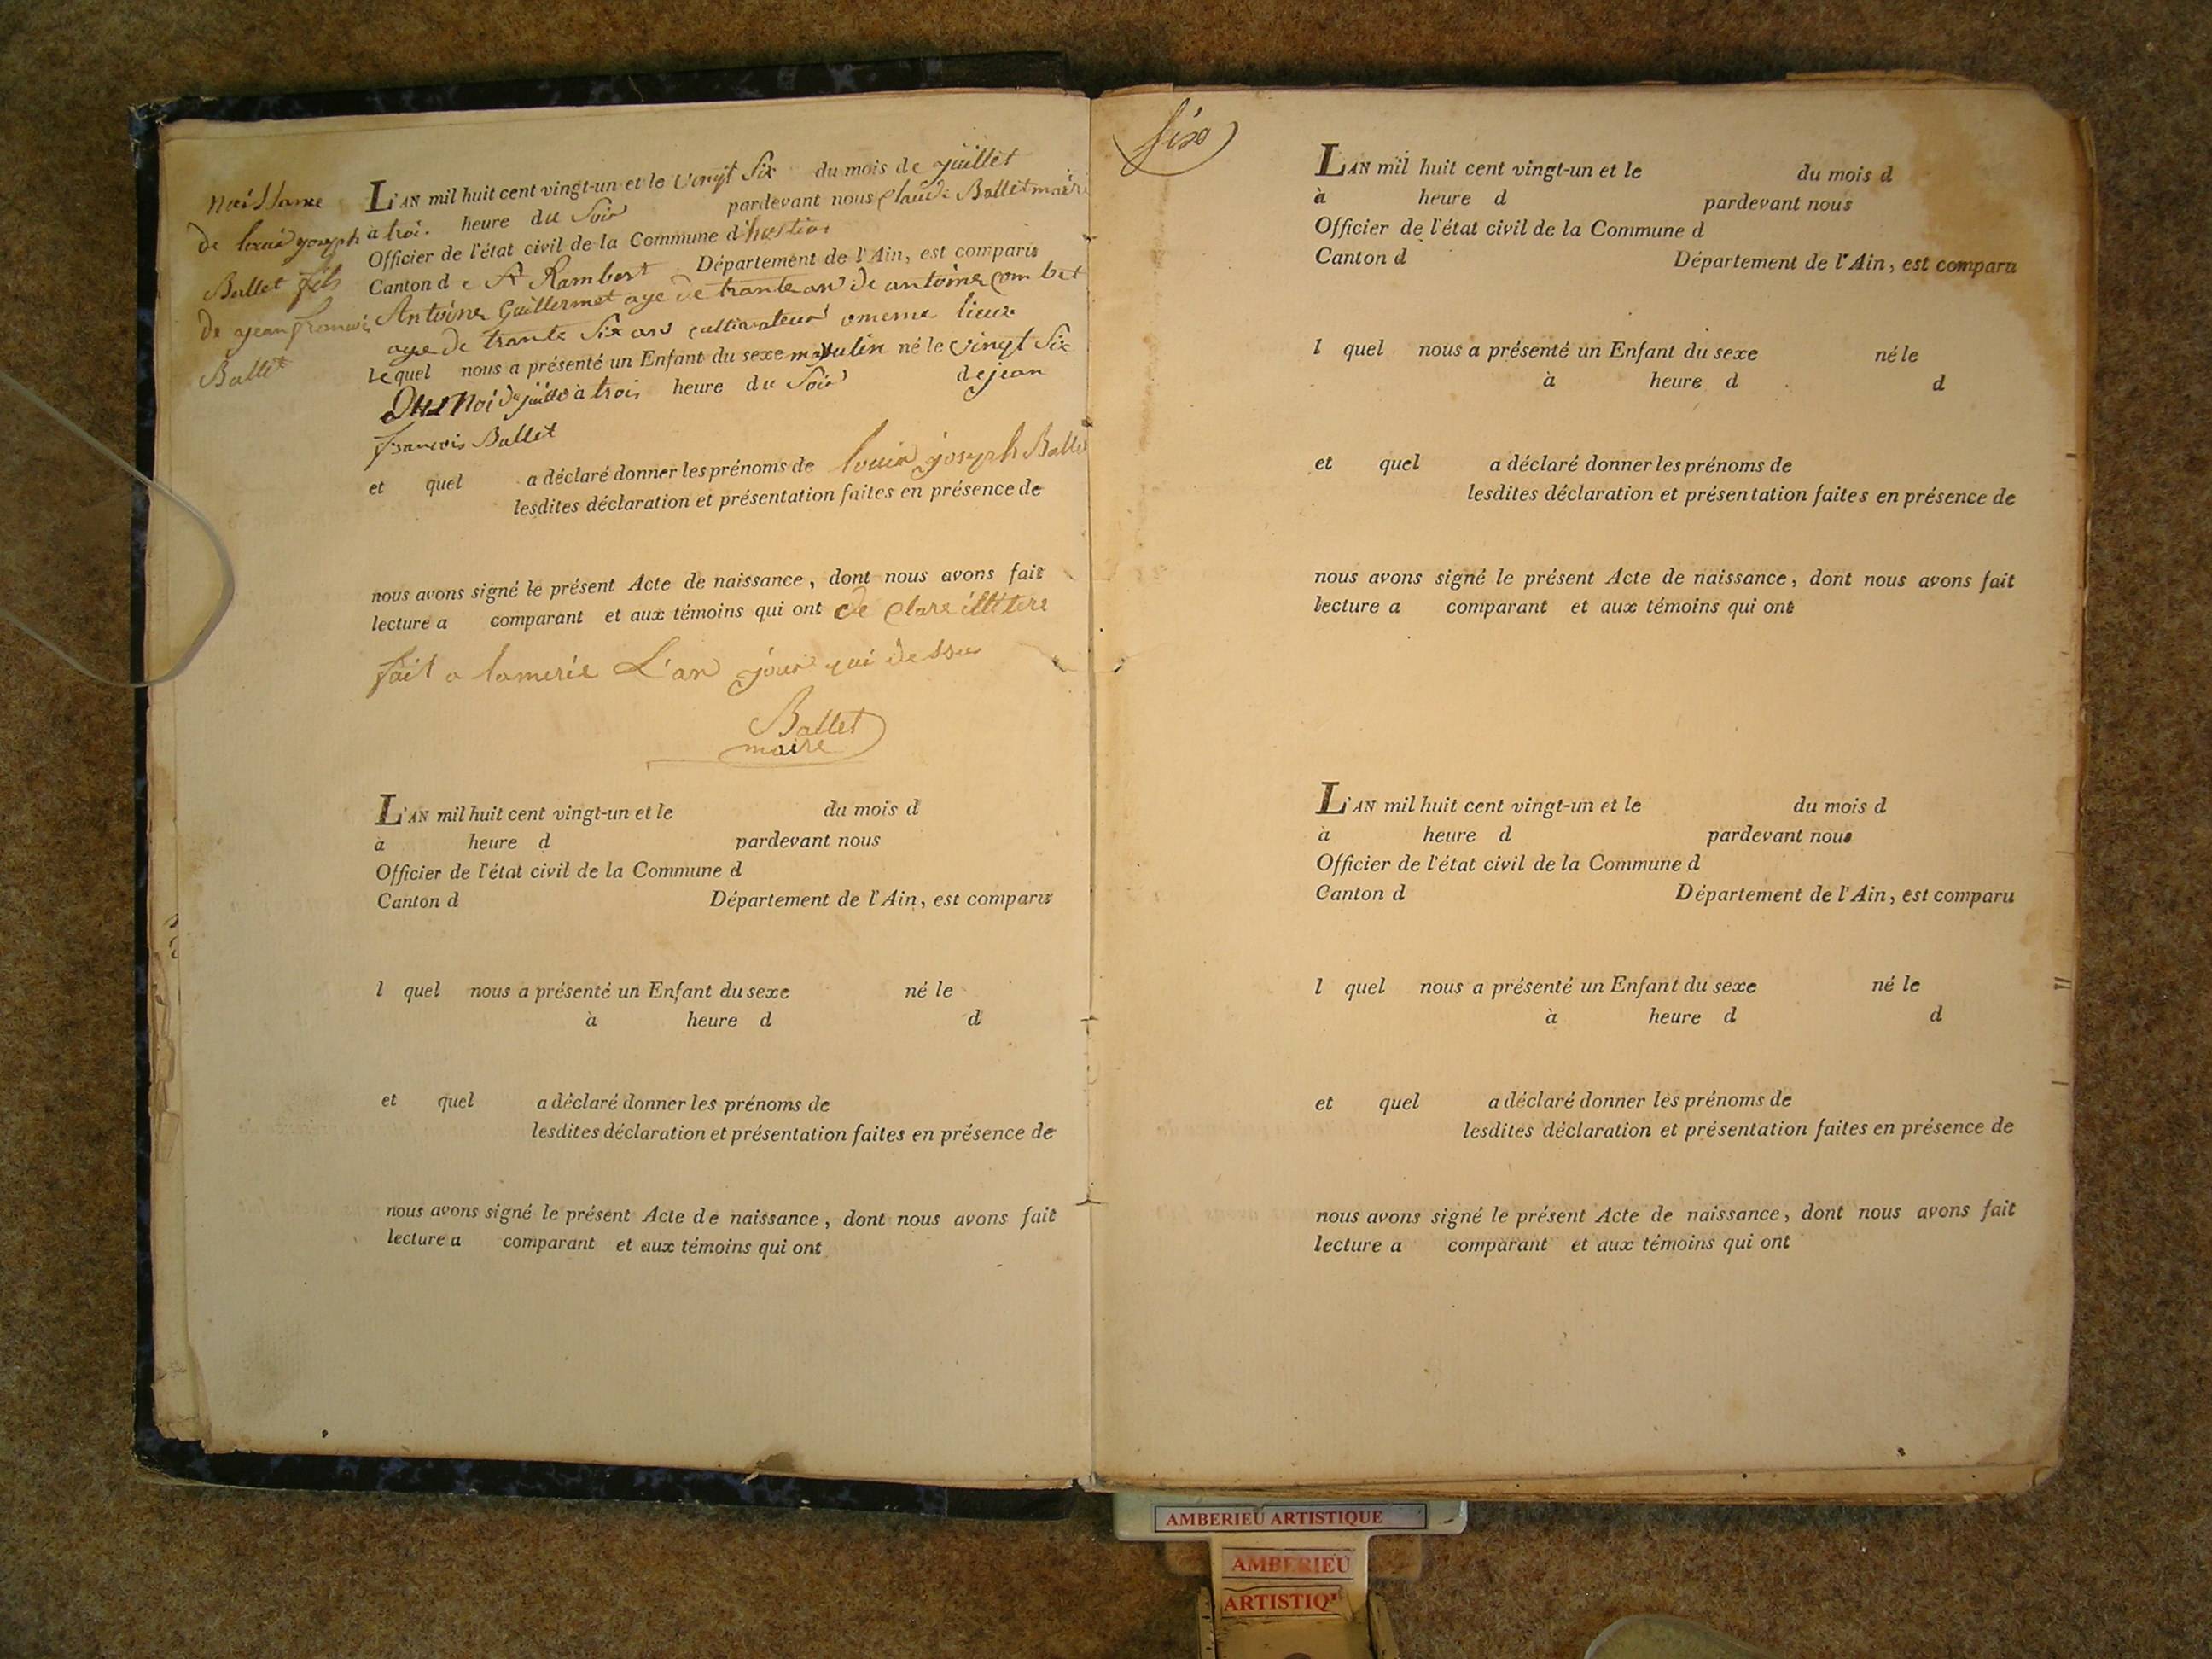 naissance
de louis joseph
Ballet fils
de jean francois
Ballet
L'AN mil huit cent vingt-un et le vingt Six du mois de juillet
à troi. heure du Soir pardevant nous Claude Ballet maire
Officier de l'état civil de la Commune d'hostias
Canton de St Rambert Département de l'Ain, est comparu
Antoine Guillermet age de trante an de antoine combet
age de trante Six ans cultivateur omeme lieux
lequel nous a présenté un Enfant du sexe masculin né le vingt Six
Du Moi de juillet à trois heure du Soir de jean
francois Ballet
et quel a déclaré donner les prénoms de louis joseph Ballet
lesdites déclaration et présentation faites en présence de
nous avons signé le présent Acte de naissance, dont nous avons fait
lecture a comparant et aux témoins qui ont de clare illitere
fait a lamerie L'an jour qui dessu
Ballet
maire
L'AN mil huit cent vingt-un et le du mois d
à heure d pardevant nous
Officier de l'état civil de la Commune d
Canton d Département de l'Ain, est comparu
l quel nous a présenté un Enfant du sexe né le
à heure d d
et quel a déclaré donner les prénoms de
lesdites déclaration et présentation faites en présence de
nous avons signé le présent Acte de naissance, dont nous avons fait
lecture a comparant et aux témoins qui ont
six
LAN mil huit cent vingt-un et le du mois d
à heure d pardevant nous
Officier de l'état civil de la Commune d
Canton d Département de l'Ain, est comparu
l quel nous a présenté un Enfant du sexe né le
à heure d d
et quel a déclaré donner les prénoms de
lesdites déclaration et présentation faites en présence de
nous avons signé le présent Acte de naissance, dont nous avons fait
lecture a comparant et aux témoins qui ont
L'AN mil huit cent vingt-un et le du mois d
à heure d pardevant nous
Officier de l'état civil de la Commune d
Canton d Département de l'Ain, est comparu
l quel nous a présenté un Enfant du sexe né le
à heure d d
et quel a déclaré donner les prénoms de
lesdites déclaration et présentation faites en présence de
nous avons signé le présent Acte de naissance, dont nous avons fait
lecture a comparant et aux témoins qui ont
AMBERIEU ARTISTIQUE
AMBERIEU
ARTISTIQ